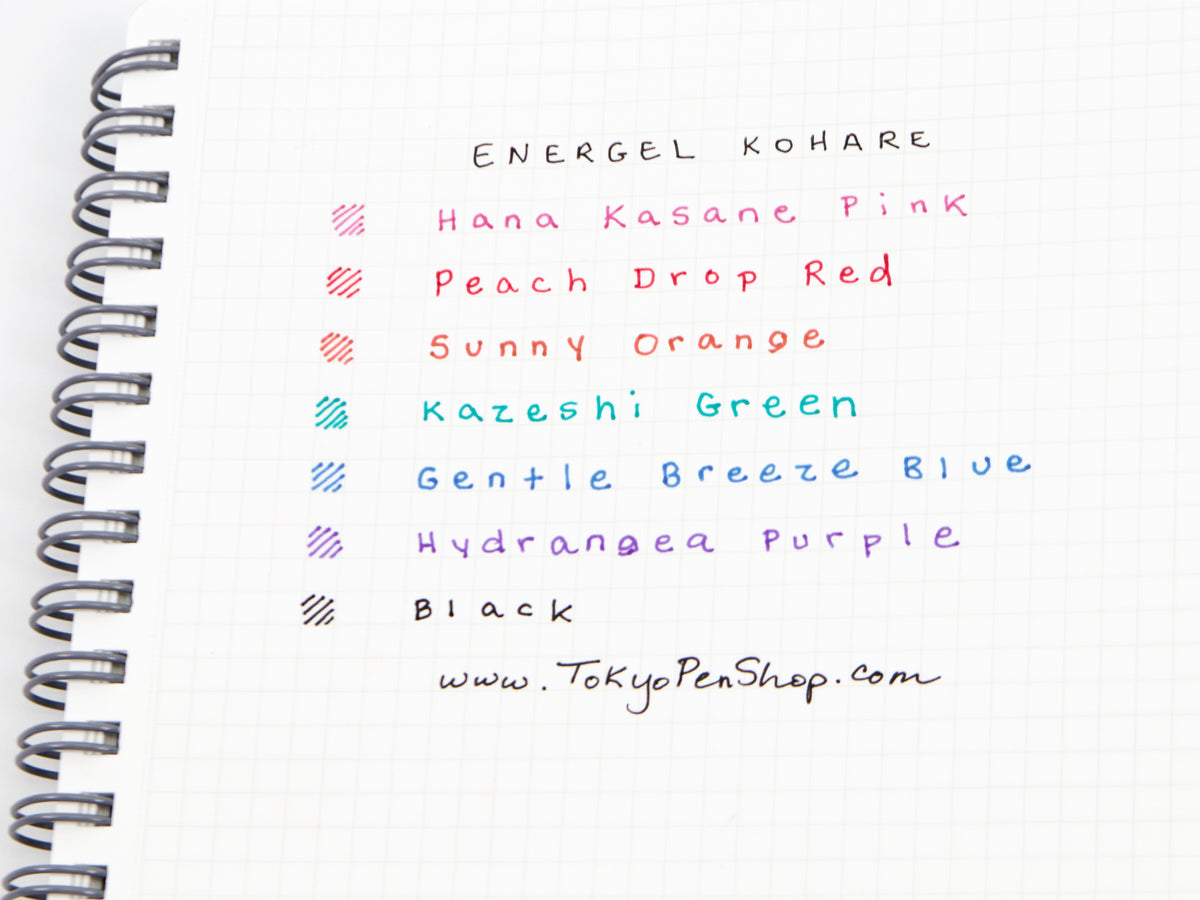 ENERGEL KOHARE
Hana Kasane Pink
Peach Drop Red
Sunny Orange
Kazeshi Green
Gentle Breeze Blue
Hydrangea Purple
Black
www.TokyoPenShop.com